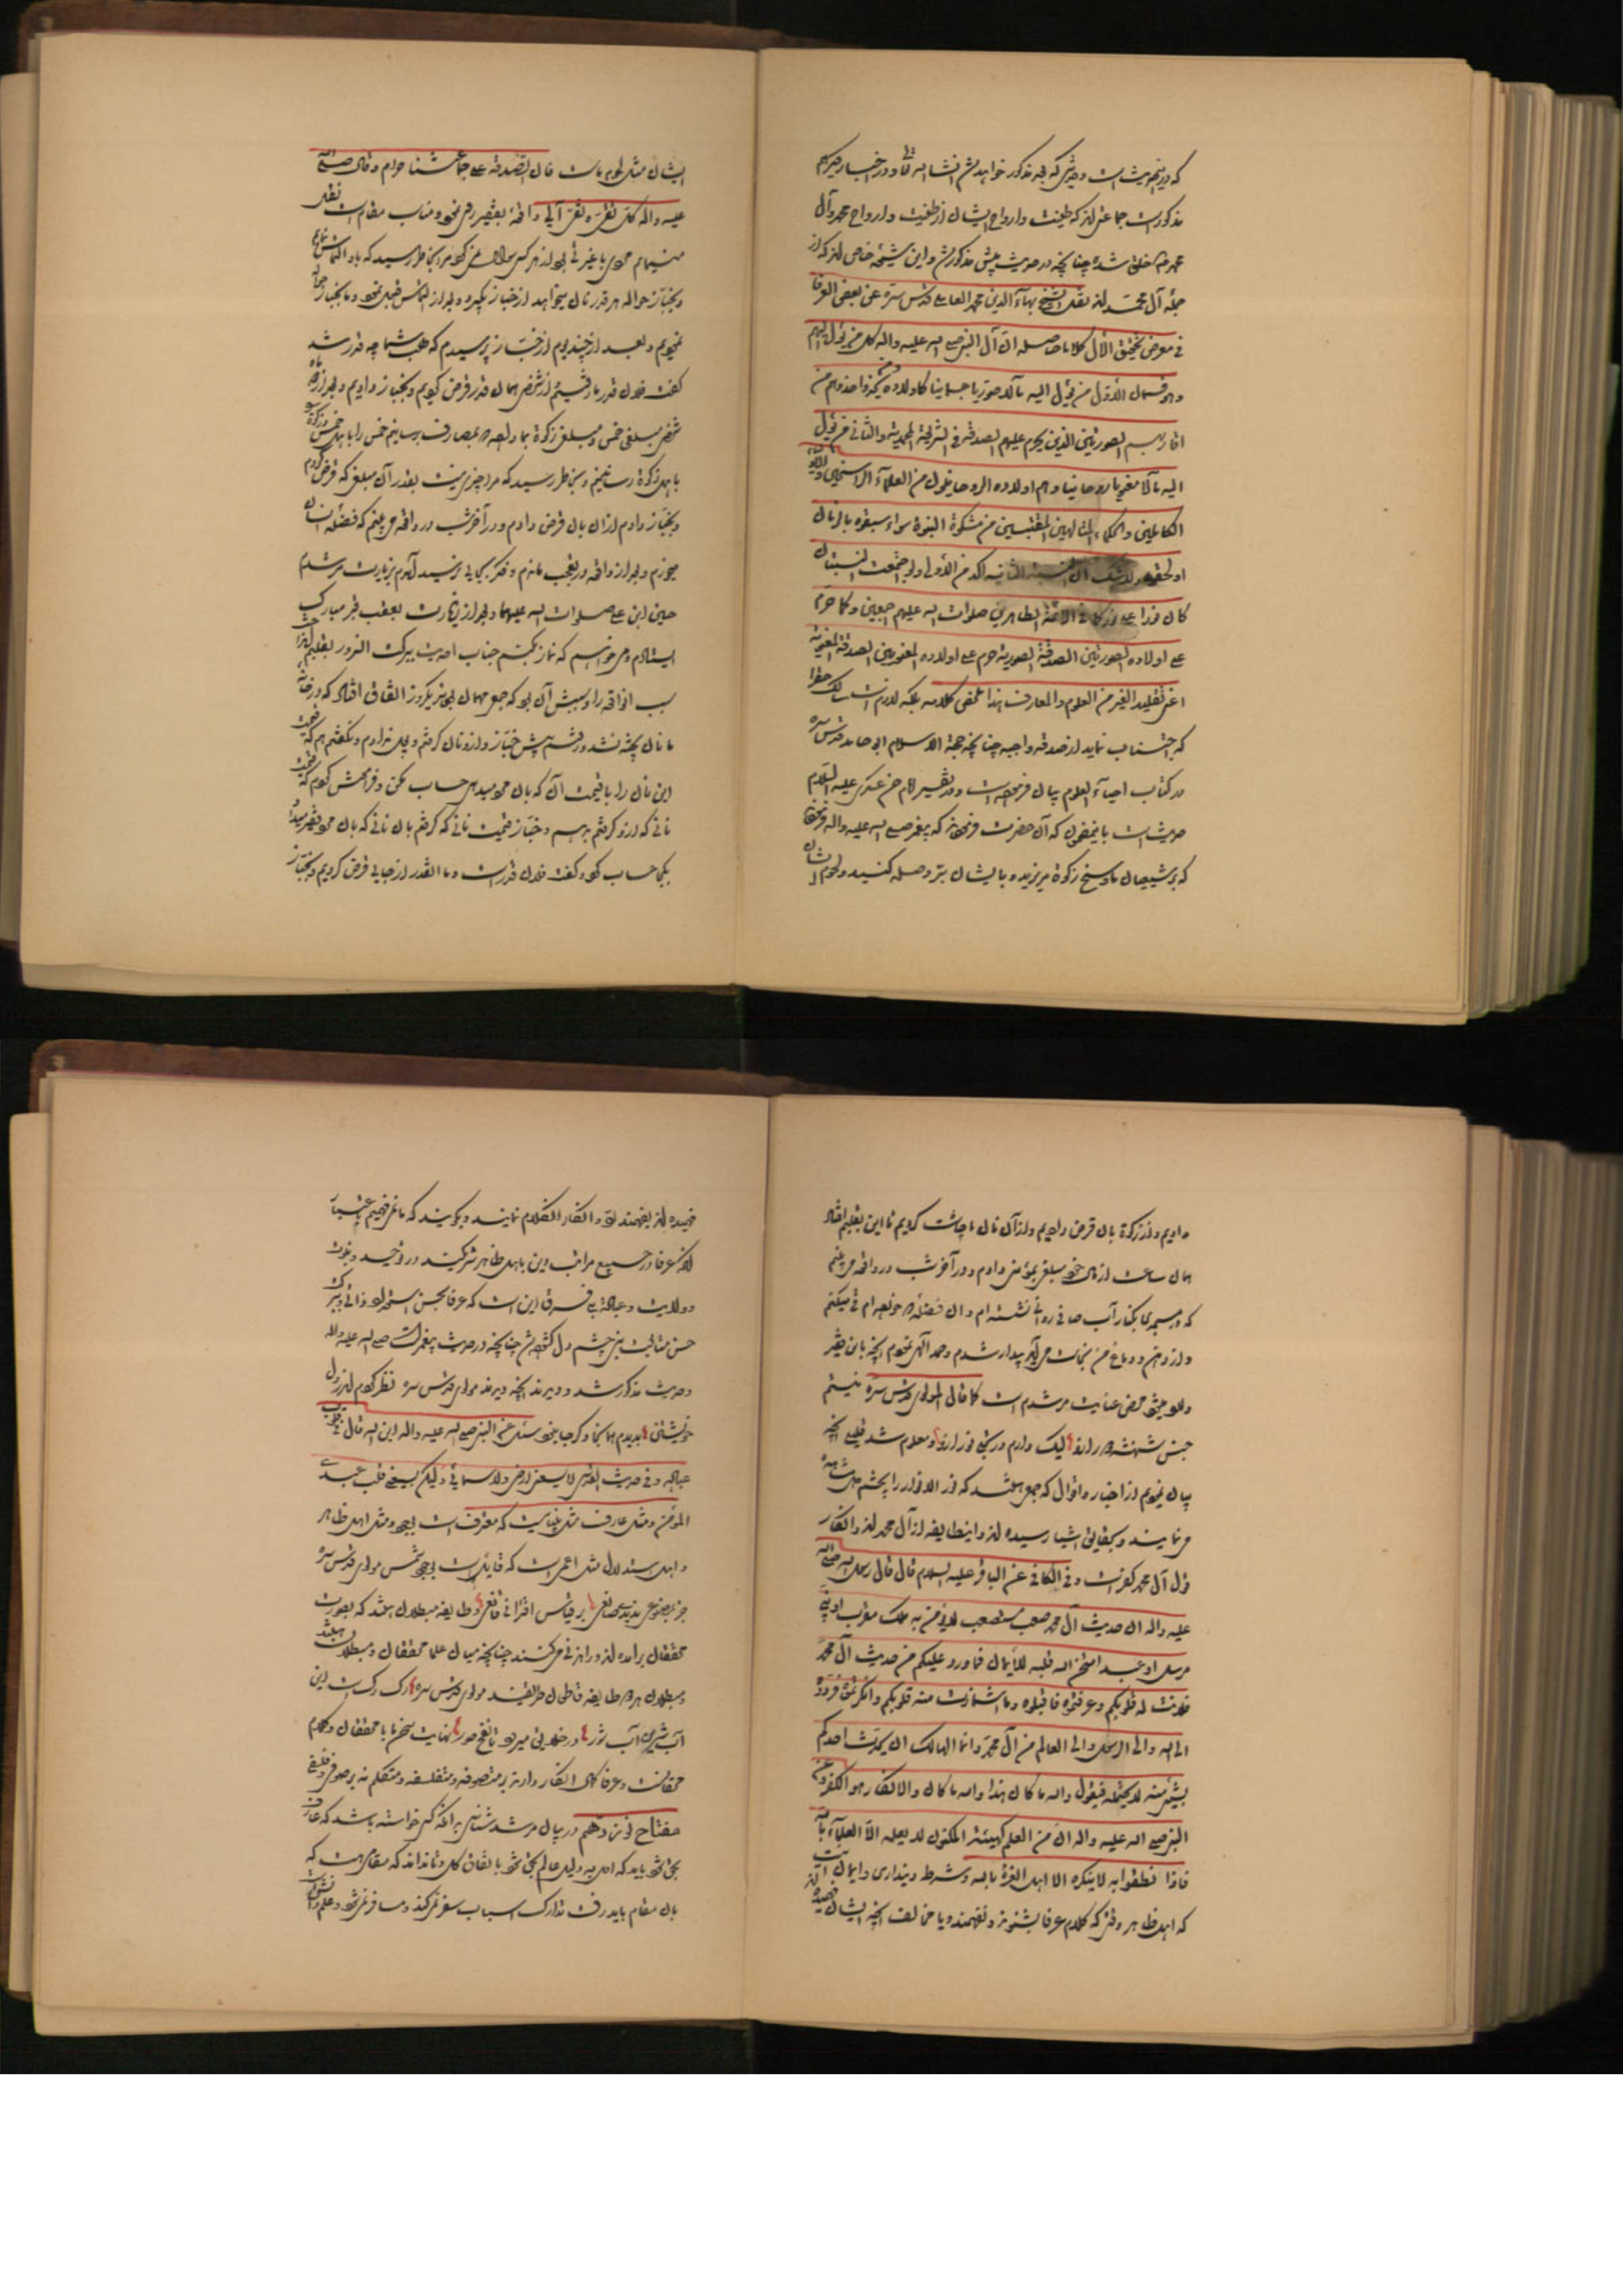 که در اینحدیث است و حدیثی که بعد مذکور خواهد شد انشا الله تعا و در اخبار دیگر هم
مذکورست جماعتی‌اند که طینت و ارواح ایشان از طینت و ارواح محمد و آل
محمد خلق شده چنانچه در حدیث پیش مذکور شد و این شیعه خاص‌اند که از
جمله آل محمدند نقل الشیخ بهاء الدین محمد العاملی قدس سره عن بعض العرفا
فی معرض تحقیق الآل کلاما حاصله ان آل النبی صلی الله علیه واله کل من یؤل الیهم
وهو قسمان الاول من یؤل الیه مآلا صوریا جسمانیا کاولاده ومن یحذو حذوهم من
اقاربهم الصوریین الذین یحرم علیهم الصدقة فی الشریعة المحمدیة والثانی من یؤل
الیه مآلا معنویا روحانیا وهم اولاده الروحانیون من العلمآء الراسخین والاولیاء
الکاملین والحکماء المتالهین المقتبسین من مشکوة النبوة سواء سبقوه بالزمان
او لحقوه ولاشک ان النسبة الثانیه آکد من الاولی واذا اجتمعت النسبتان
کان نورا علی نور کما فی الائمة الطاهرین صلوات الله علیهم اجمعین وکما حرم
علی اولاده الصوریین الصدقة الصوریة حرم علی اولاده المعنویین الصدقة المعنویة
اعنی تقلید الغیر من العلوم والمعارف هذا ملخص کلامه بلکه لازم است سالک
که اجتناب نماید از صدقه واجبه چنانچه حجة الاسلام ابی حامد قدس سره
در کتاب احیآء العلوم بیان فرموده است و در تفسیر امام حسن عسکری علیه السلام
حدیث است باینمضمون که آن حضرت فرموده‌اند که پیغمبر صلی الله علیه واله فرمود
که بر شیعیان ما وسخ زکوة مریزید و بایشان بر و صله کنید و لحوم ایشان
ایشان مثل لحوم ماست قال الصدقة علی جماعتنا حرام وقال صلی الله
علیه واله کل تقی و نقی آلی واقعهٔ بفقیر رخ نمود و مناسب مقام است نقل
مینمایم
و بخباز حواله هر قدر نان میخواهد از خباز بگیرد و بعد از التماس قبول نمود و ما بخباز حواله
نمودیم و بعد از چند یوم از خباز پرسیدم که طلب شما چه قدر شد
گفت فلان قدر ما رفتیم از شخصی همان قدر قرض کردیم و بخباز دادیم و بعد از آن
شخصی مبلغی خمس و مبلغی زکوة بما داد که بمصارف برسانیم خمس را باهل خمس و زکوة
باهل زکوة رسانیدم و بخاطر رسید که مرا چیزی نیست بقدر آن مبلغ که قرض کردم
و بخباز دادم از آن بآن قرض دادم و در آخر شب در واقعه می‌بینم که فضلهٔ انسان
میخورم و بعد از واقعه در تعجب ماندم و فکر بجایی نرسید آمدم بزیارت مرشدم
حسین ابن علی صلوات الله علیهما و بعد از زیارت بعقب قبر مبارک
ایستادم و می‌خواستم که نماز بکنم جناب احدیت ببرکت آن سرور تعلیم
سبب آن واقعه را و سببش آن بود که جمعی مهمان بودند یکروز اتفاق افتاد که در خانهٔ
ما نان پخته نشد و رفتم پیش خباز و از او نان گرفتم و پول نداد­م و نگفتم هم که قیمت
این نان را با قیمت آن که بآن مؤمن میدهی حساب مکن و فراموش کردم که قیمت
نانی که از او گرفتم بدهم و خباز قیمت نانی که گرفتم بآن نانی که بآن مؤمن فقیر میداد
یکجا حساب کرد و گفت فلان قدر است و ما آنقدر از جایی قرض کردیم و بخباز
دادیم و از زکوة بآن قرض دادیم و از آن نان ما چاشت کردیم تا این تعلیم افتاد
همان ساعت از مال خود مبلغی بمؤمنی دادم و در آخر شب در واقعه می‌بینم
که در مسجدی بکنار آب صافی روانی نشسته‌ام و آن فضله که خورده‌ام قی میکنم
و از دهن و دماغ من نجاست می‌آید بیدار شدم و حمد الهی نمودم آنچه باین فقیر
محض عنایت مرشدم است کما قال المولوی قدس سره نیستم
جنس شهنشه دور ازو لیک دارم در تجلی نور ازو و معلوم شد قلیلی آنچه
بیان نمودیم از اخبار و اقوال که جمعی هستند که نور الانوار را بچشم دل مشاهده
می‌نمایند و بحقایق اشیا رسیده‌اند و اینطایفه از آل محمدند و انکار
قول آل محمد کفرست وفی الکافی عن الباقر علیه السلام قال قال رسول الله صلی الله
علیه واله ان حدیث آل محمد صعب مستصعب لایؤمن به الا ملک مقرب او نبی
مرسل او عبد امتحن الله قلبه للایمان فما ورد علیکم من حدیث آل محمد
فلانت له قلوبکم وعرفتموه فاقبلوه وما اشمازت منه قلوبکم وانکرتموه فردوه
الی الله والی الرسول والی العالم من آل محمد وانما الهالک ان یحدث احدکم
بشیء منه لا یحتمله فیقول والله ما کان هذا والله ما کان والانکار هو الکفر وعن
النبی صلی الله علیه واله ان من العلم کهیئة المکنون لا یعلمه الا العلمآء بالله
فاذا نطقوا به لاینکره الا اهل الغرة بالله وشرط دینداری و ایمان اینست
که اهل ظاهر وقتی که کلام عرفا بشنوند و نفهمند و یا مخالف آنچه ایشان فهمیده‌اند
فهمیده‌اند بفهمند انکار آنکلام نمایند و بگویند که ما نمی‌فهمیم
عرفا در جمیع مراتب دین باهل ظاهر شریکند در توحید و نبوت
و ولایت و عبادت فرق این است که عرفا بحسن استعداد ذاتی و ببرکت
حسن متابعت نبی چشم دل گشوده چنانچه در حدیث پیغمبرست صلی الله علیه واله
و حدیث مذکور شد و دیدند آنچه دیدند مولوی قدس سره نظر کردم اندر دل
خویشتن بدیدم همانجا دگر جا نبود سئل عن النبی صلی الله علیه واله این الله قال فی قلوب
عباده وفی حدیث القدسی لایسعنی ارضی ولا سمائی ولیکن یسعنی قلب عبدی
المؤمن و مثل عارف مثل بیناست که معترفست بوجود و مثل اهل ظاهر
و اهل استدلال مثل اعمی است که قایلست بوجود شمس مولوی قدس سره
جز بمصنوعی ندیدی صانعی بر قیاس اقترانی قانعی و طایفه مبطلان هستند که بصورت
محققان برآمده‌اند و راهزنی می‌کنند چنانچه میان علما محققان و مبطلان هستند
و مبطلان هر دو طایفه قاطعان طریقند مولوی قدس سره رک رکست این
آب شیرین آب شور در خلایق میرود تا نفخ صور نهایت سخن ما با محققان و کلام
حقانست و عرفا کمال انکار دارند بر متصوفه و متفلسفه و متکلم نه بر صوفی و فلسفی
مفتاح نوزدهم در بیان مرشد شناسی بدانکه کسی خواسته باشد که عارف
بحق شود باید که اهل بیه و دلیل عالم بحق شود باتفاق کل و تا نداند که مقامی هست که
بآن مقام باید رفت تدارک اسباب سفر نمی‌کند و مسافر نمی‌شود و علم و